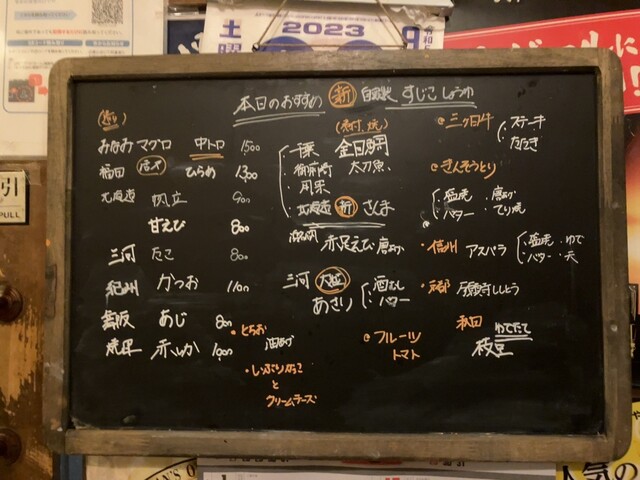 2023
土
本日のおすすめ 新 自家製 すじこしょうゆ
造り
みなみマグロ 中トロ 1500
福田 活〆 ひらめ 1300
北海道 帆立 900
甘えび 800
三河 たこ 800
紀州 かつお 1100
舞阪 あじ 800
焼津 赤いか 1000
(煮付、焼)
千葉 金目鯛
御前崎 太刀魚
北海道 新 さんま
赤足えび 唐あげ
三河 大粒 あさり
酒むし
バター
とちお
油あげ
いぶりがっこ
と
クリームチーズ
三ヶ日牛
ステーキ
たたき
きんそうとり
塩焼 唐あげ
バター てり焼
信州 アスパラ
塩焼 ゆで
バター 天
京都 万願寺ししとう
フルーツ
トマト
秋田 ゆでたて
枝豆
引
PULL
人気の